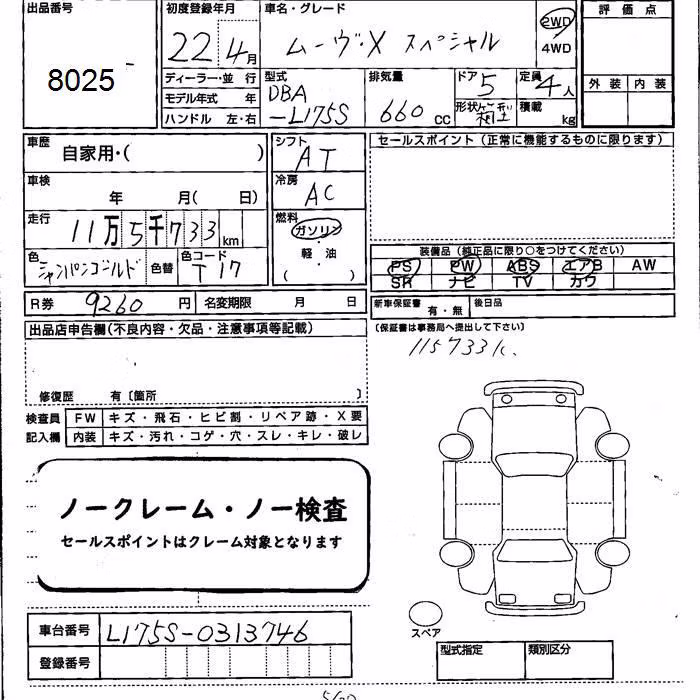 出品番号
8025
初度登録年月
22年 4月
車名・グレード
ムーヴ・X スペシャル
2WD
4WD
評価点
外装 内装
ディーラー・並 行
モデル年式 年
ハンドル 左・右
型式
DBA
-L175S
排気量
660 CC
ドア
5
形状 箱型
定員
4人
積載
kg
車歴
自家用・( )
車検
年 月( 日)
走行
11万5千733km
色
シャンパンゴールド
色替
色コード
T17
シフト
AT
冷房
AC
燃料
ガソリン
・
軽・油
( )
セールスポイント(正常に機能するものに限ります)
装備品(純正品に限り○をつけてください)
PS PW ABS エアB AW
SR ナビ TV カワ
R券 9260 円
名変期限 月 日
新車保証書 有・無
後日品
(保証書は事務局へ提出して下さい)
115733k.
出品店申告欄(不良内容・欠品・注意事項等記載)
修復歴 有〔箇所 〕
検査員
記入欄
FW キズ・飛石・ヒビ割・リペア跡・X要
内装 キズ・汚れ・コゲ・穴・スレ・キレ・破レ
ノークレーム・ノー検査
セールスポイントはクレーム対象となります
スペア
車台番号 L175S-0313746
登録番号
型式指定
類別区分